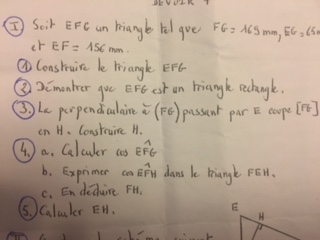 DEVOIR
I Soit EFG un triangle tel que FG = 169 mm, EG = 65m
et EF = 156 mm.
1. Construire le triangle EFG
2. Démontrer que EFG est un triangle rectangle.
3. La perpendiculaire à (FG) passant par E coupe [FG]
en H. Construire H.
4. a. Calculer cos EF̂G
b. Exprimer cos EF̂H dans le triangle FEH.
c. En déduire FH.
5. Calculer EH.
E
H
II